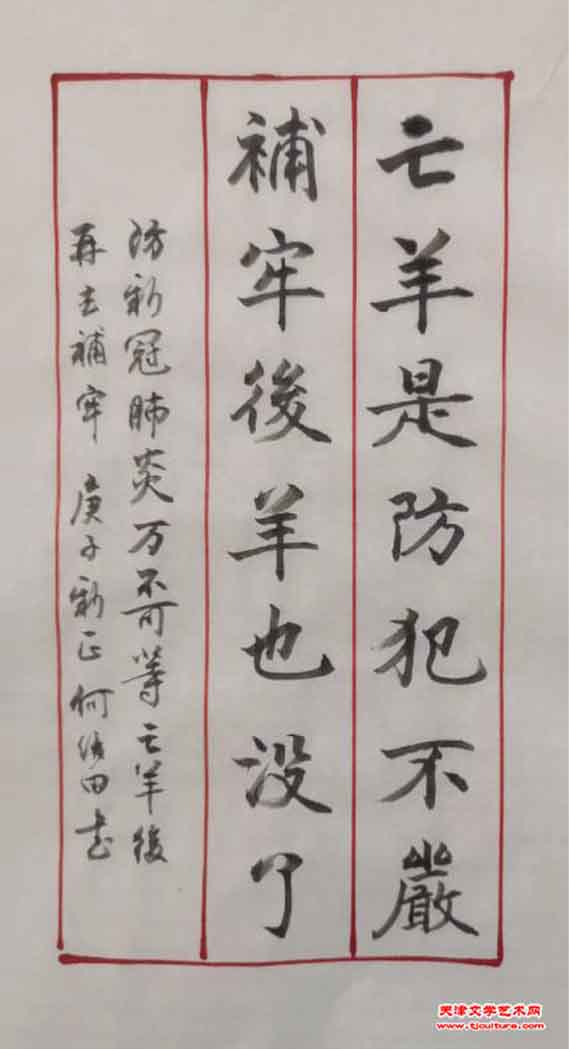 亡羊是防犯不嚴
補牢後羊也没了
防新冠肺炎万不可等亡羊後
再去補牢 庚子新正何 田书
天津文学艺术网
www.tjculture.com